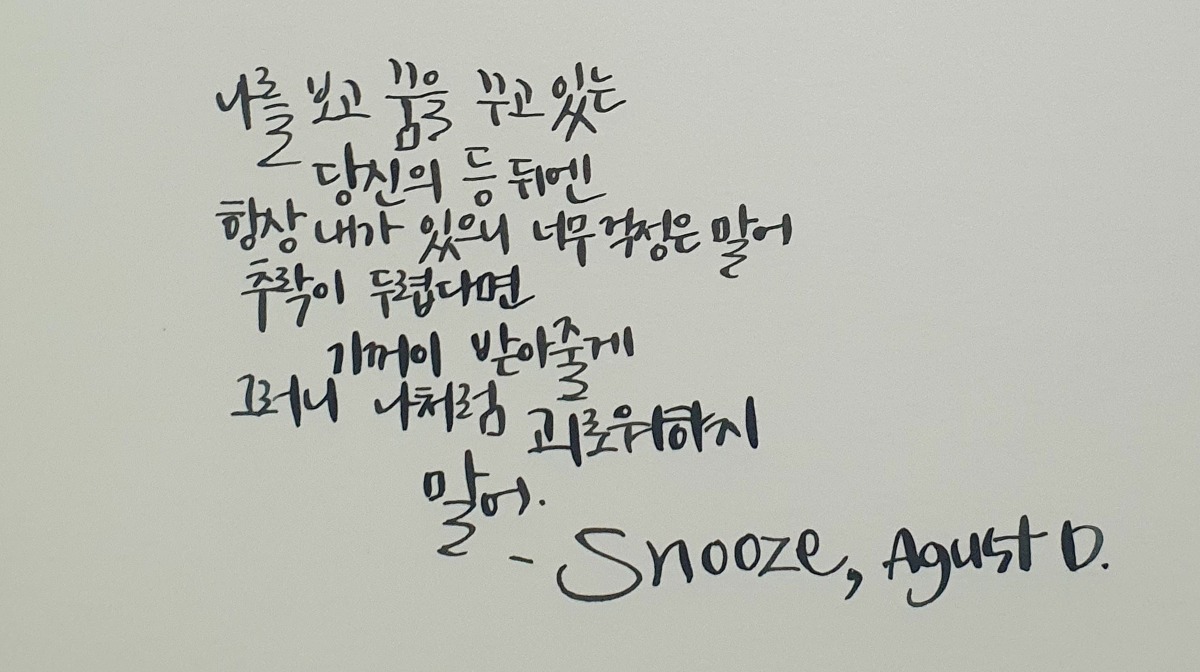 나를 보고 꿈을 꾸고 있는
당신의 등 뒤엔
항상 내가 있으니 너무 걱정은 말어
추락이 두렵다면
기꺼이 받아줄게
그러니 나처럼 괴로워하지
말어.
- Snooze, Agust D.